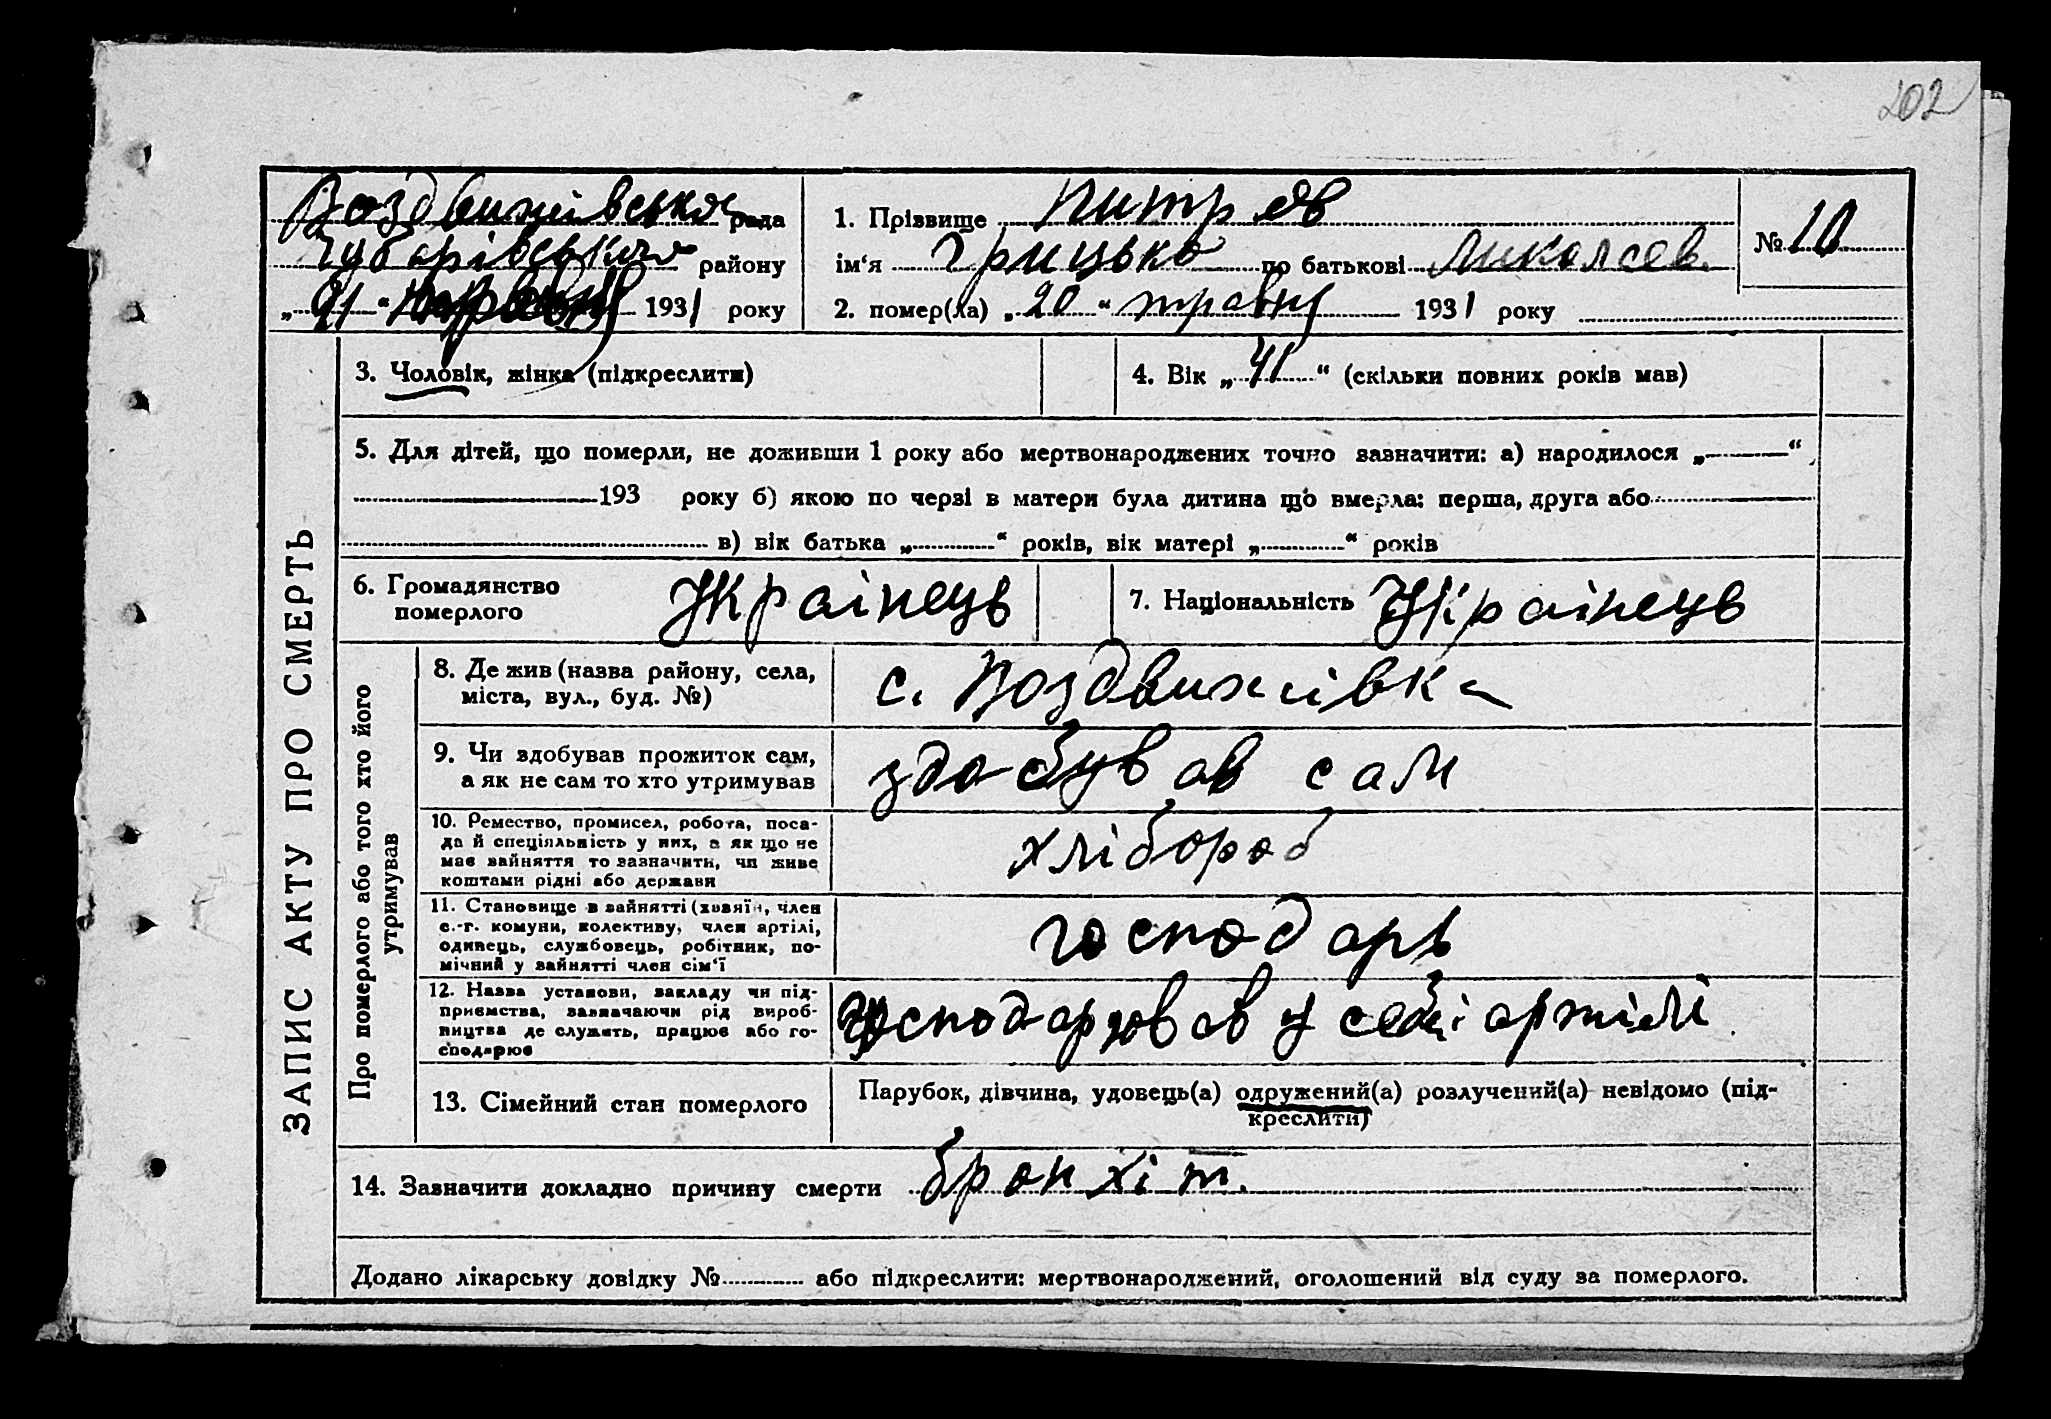 202
Воздвижівська рада
Чубарівського району
„21“ травня 1931 року
1. Прізвище Питряв
ім‘я Грицько по батькові Миколаєв.
№ 10
2. помер(ла) „20“ травня 1931 року
ЗАПИС АКТУ ПРО СМЕРТЬ
3. Чоловік, жінка (підкреслити)
4. Вік „41“ (скільки повних років мав)
5. Для дітей, що померли, не доживши 1 року або мертвонароджених точно зазначити: а) народилося „ “
193 року б) якою по черзі в матери була дитина що вмерла: перша, друга або
в) вік батька „ “ років, вік матері „ “ років
6. Громадянство
померлого
Украінець
7. Національність Украінець
Про померлого або того хто його
утримував
8. Де жив (назва району, села,
міста, вул., буд. №)
с. Воздвижівка
9. Чи здобував прожиток сам,
а як не сам то хто утримував
здобував сам
10. Ремество, промисел, робота, поса-
да й спеціяльність у них, а як що не
має зайняття то зазначити, чи живе
коштами рідні або держави
хлібороб
11. Становище в зайнятті (хазяїн, член
с.-г. комуни, колективу, член артілі,
одинець, службовець, робітник, по-
мічний у зайнятті член сім‘ї
господарь
12. Назва установи, закладу чи під-
приємства, зазначаючи рід вироб-
ництва де служить, працює або го-
сподарює
господарював у себі артілі
13. Сімейний стан померлого
Парубок, дівчина, удовець(а) одружений(а) розлучений(а) невідомо (під-
креслити)
14. Зазначити докладно причину смерти бронхіт.
Додано лікарську довідку № або підкреслити: мертвонароджений, оголошений від суду за померлого.